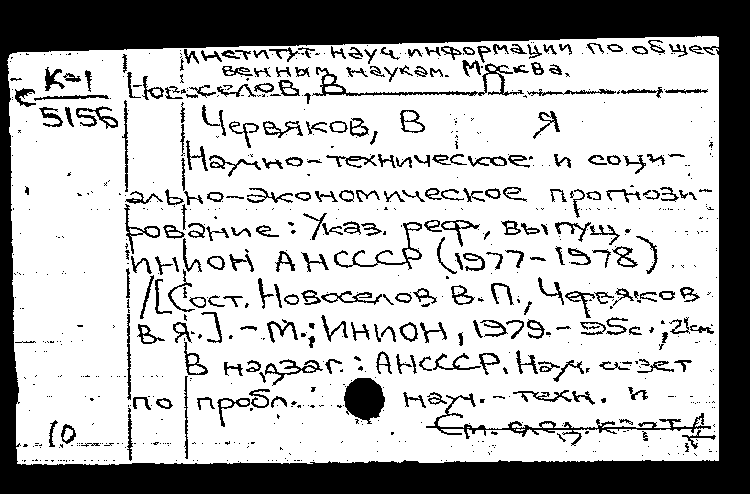 Институт науч. информации по общест
венным наукам. Москва.
К-1
Новоселов, В П
С
5156
Червяков, В Я
Научно-техническое и соци-
ально-экономическое прогнози-
рование: Указ. реф., выпущ.
ИНИОН АНСССР (1977-1978)
/[Сост. Новоселов В.П., Червяков
В.Я.]. - М.; ИНИОН, 1979. - 95с.; 21см
В надзаг.: АНСССР. Науч. совет
по пробл.: науч.-техн. и
10
См. след. карт.